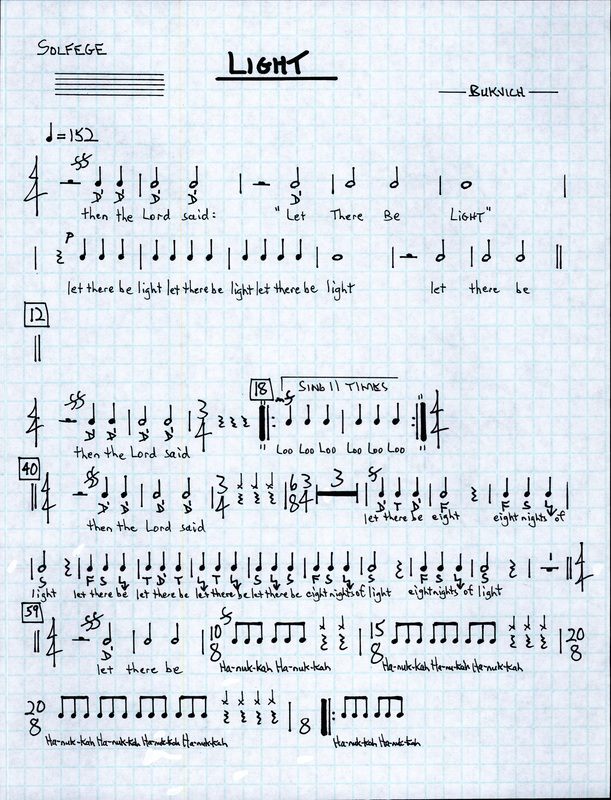 SOLFEGE
LIGHT
BUKVICH
♩=152
4/4 ff D' D' D' D' D'
then the Lord said: "Let There Be LIGHT"
P
let there be light let there be light let there be light let there be
12
4/4 ff D' D' D' D' 3/4 18 mf SING 11 TIMES 4/4
then the Lord said Loo Loo Loo Loo Loo Loo
40
4/4 ff D' D' D' D' 3/4 6/8 3/4 3 D' T D' F F S
then the Lord said let there be eight eight nights of
S F S T D' T S F S S F S S 4/4
light let there be let there be let there be let there be eight nights of light eight nights of light
59
4/4 ff D' 10/8 15/8 20/8
let there be Ha-nuk-kah Ha-nuk-kah Ha-nuk-kah Ha-nuk-kah Ha-nuk-kah
20/8 8
Ha-nuk-kah Ha-nuk-kah Ha-nuk-kah Ha-nuk-kah Ha-nuk-kah Ha-nuk-kah